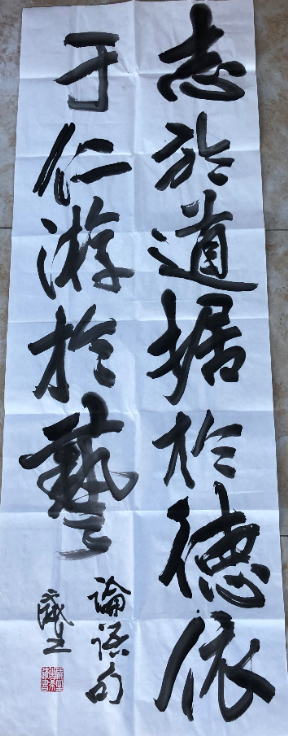 志於道据於德依
于仁游於藝
論語句